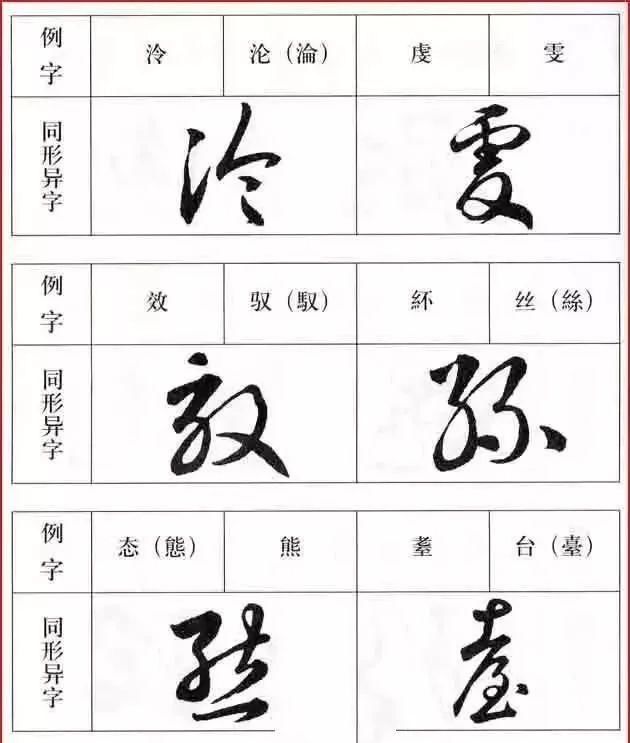 例字 泠 沦（淪） 虔 雯
同形异字
例字 效 驭（馭） 紑 丝（絲）
同形异字
例字 态（態） 熊 耋 台（臺）
同形异字